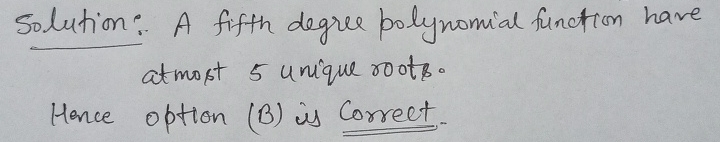 Solution:. A fifth degree polynomial function have
atmost 5 unique roots.
Hence option (B) is Correct.